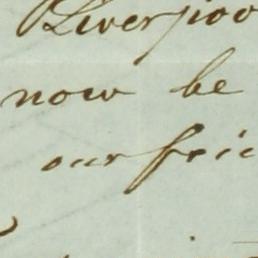 Liverpoo
now be
our frie